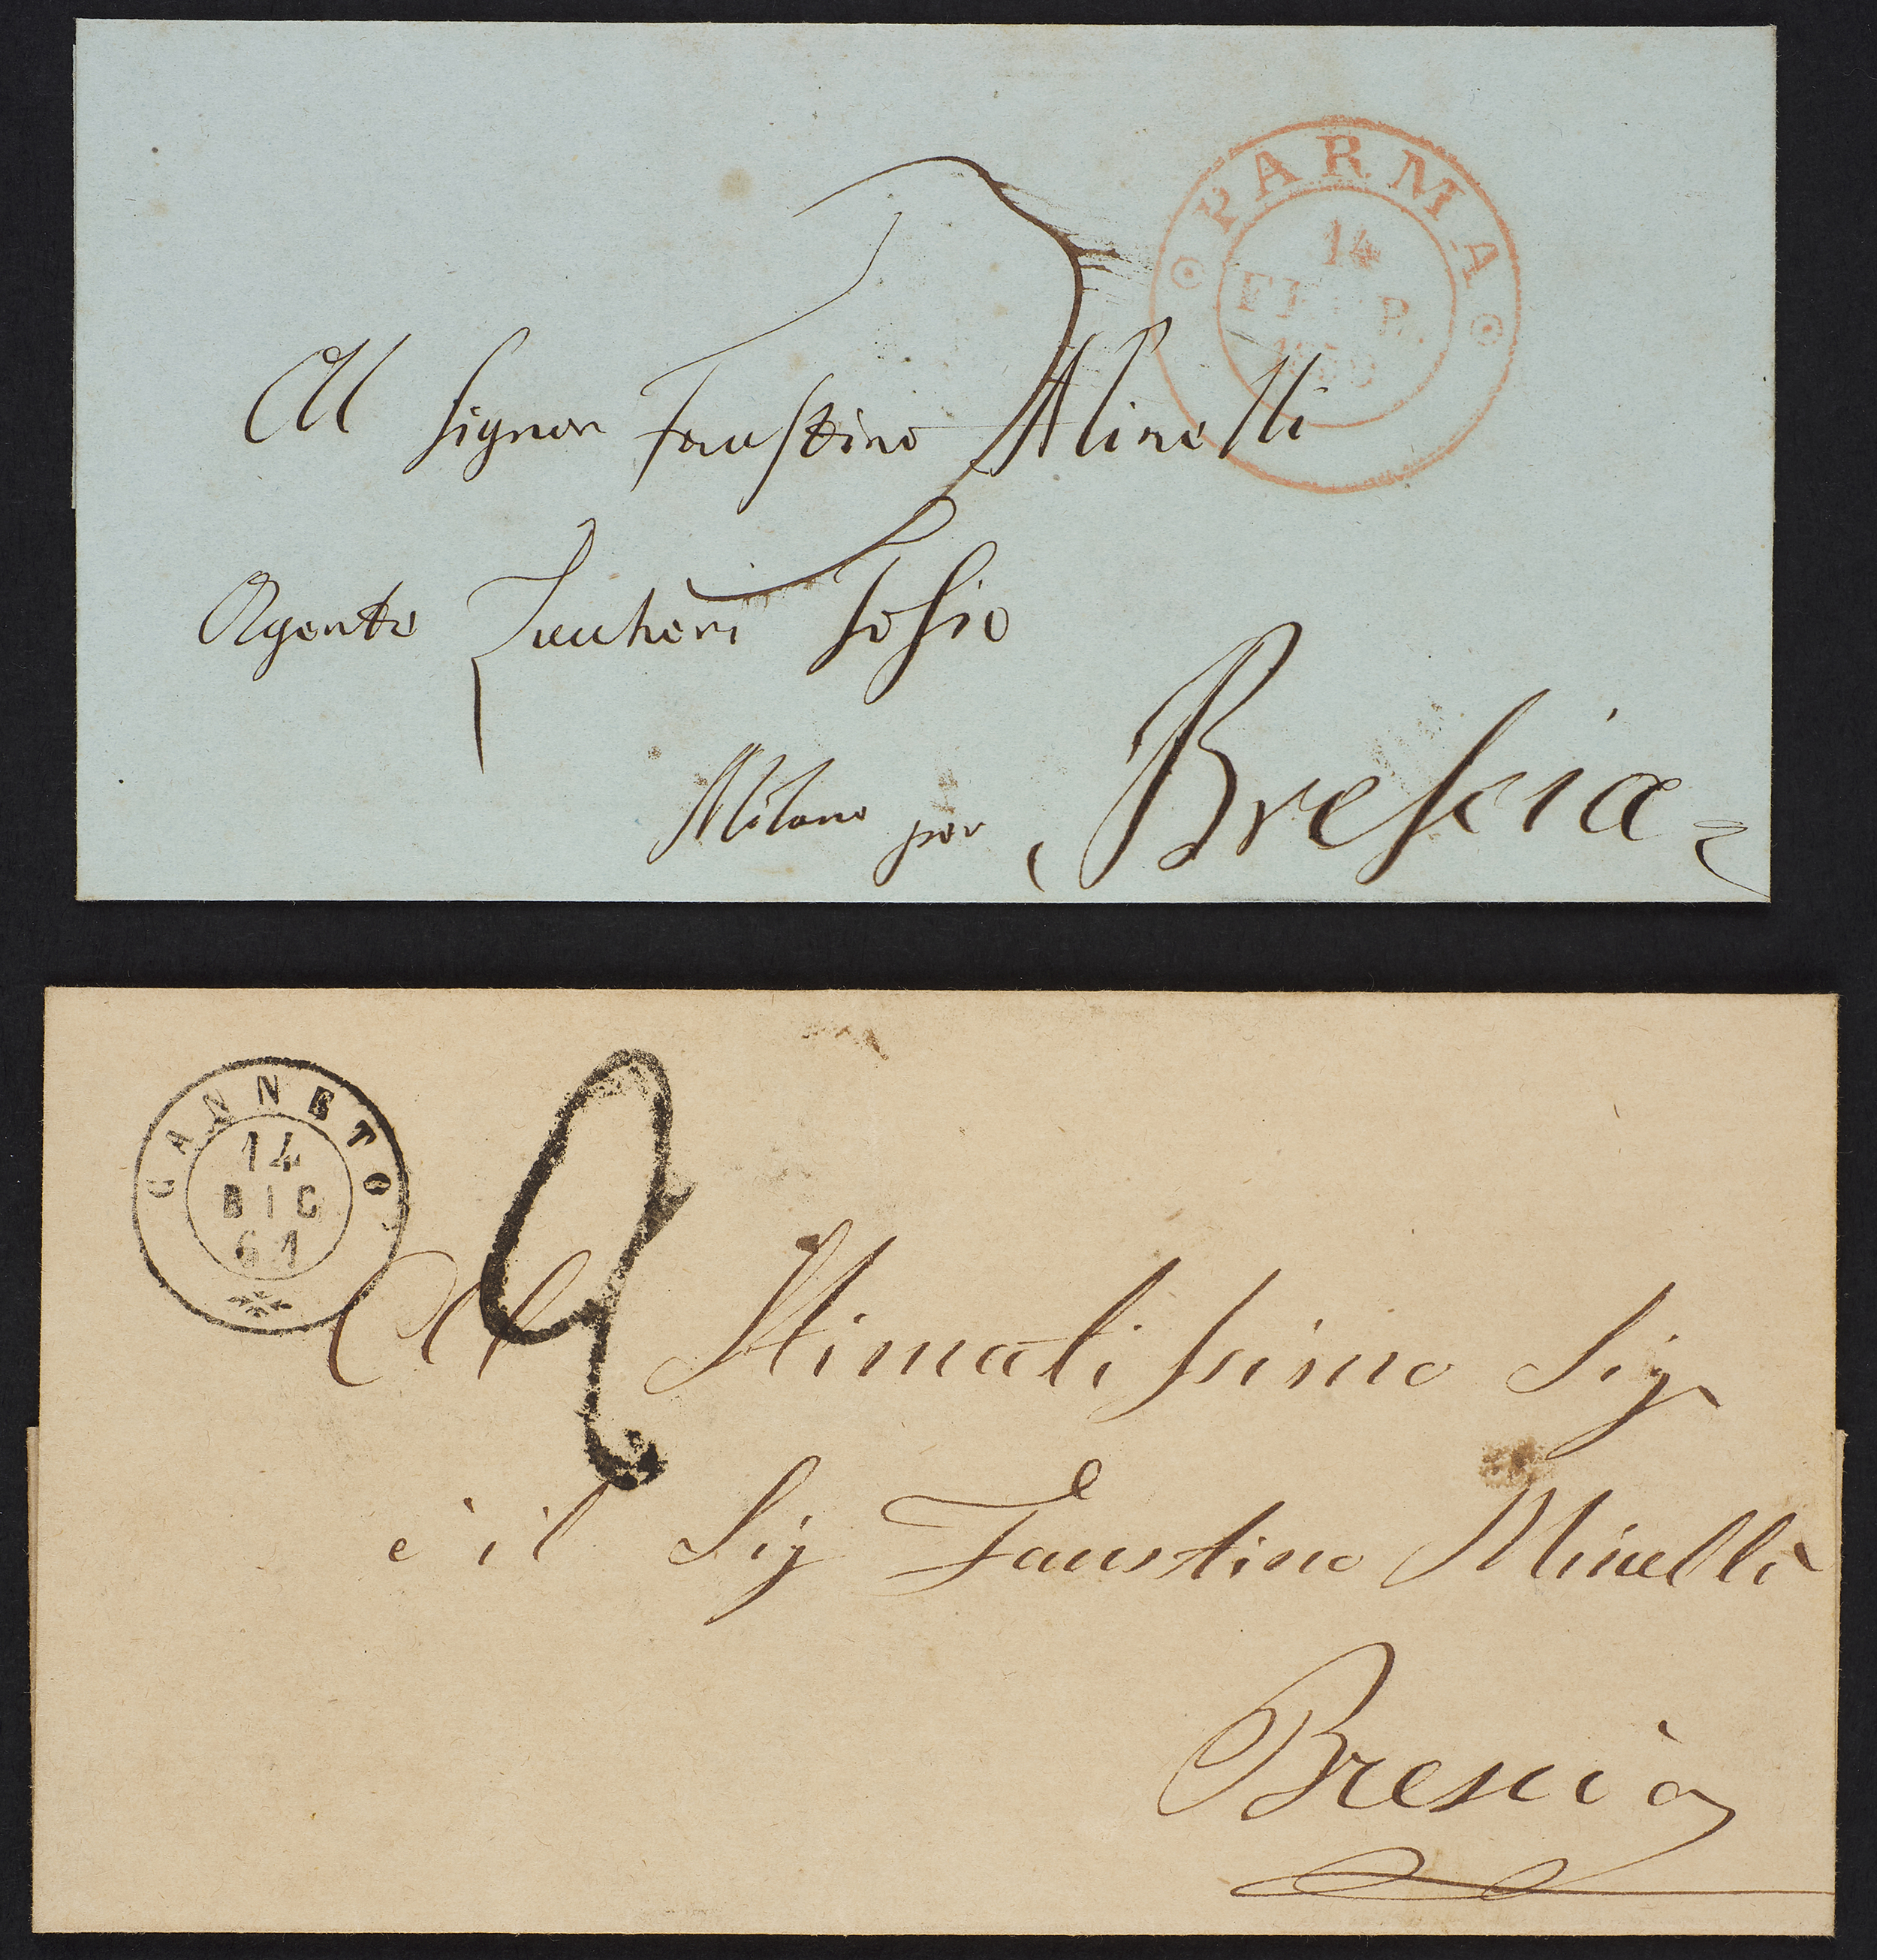 PARMA
14
FEBBR.
Al Signor Faustino Minelli
Agente Zuccheri Tosio
Milano per Brescia
CANNETO
14
DIC
61
2
Al Stimatissimo Sig
è il Sig Faustino Minelli
Brescia